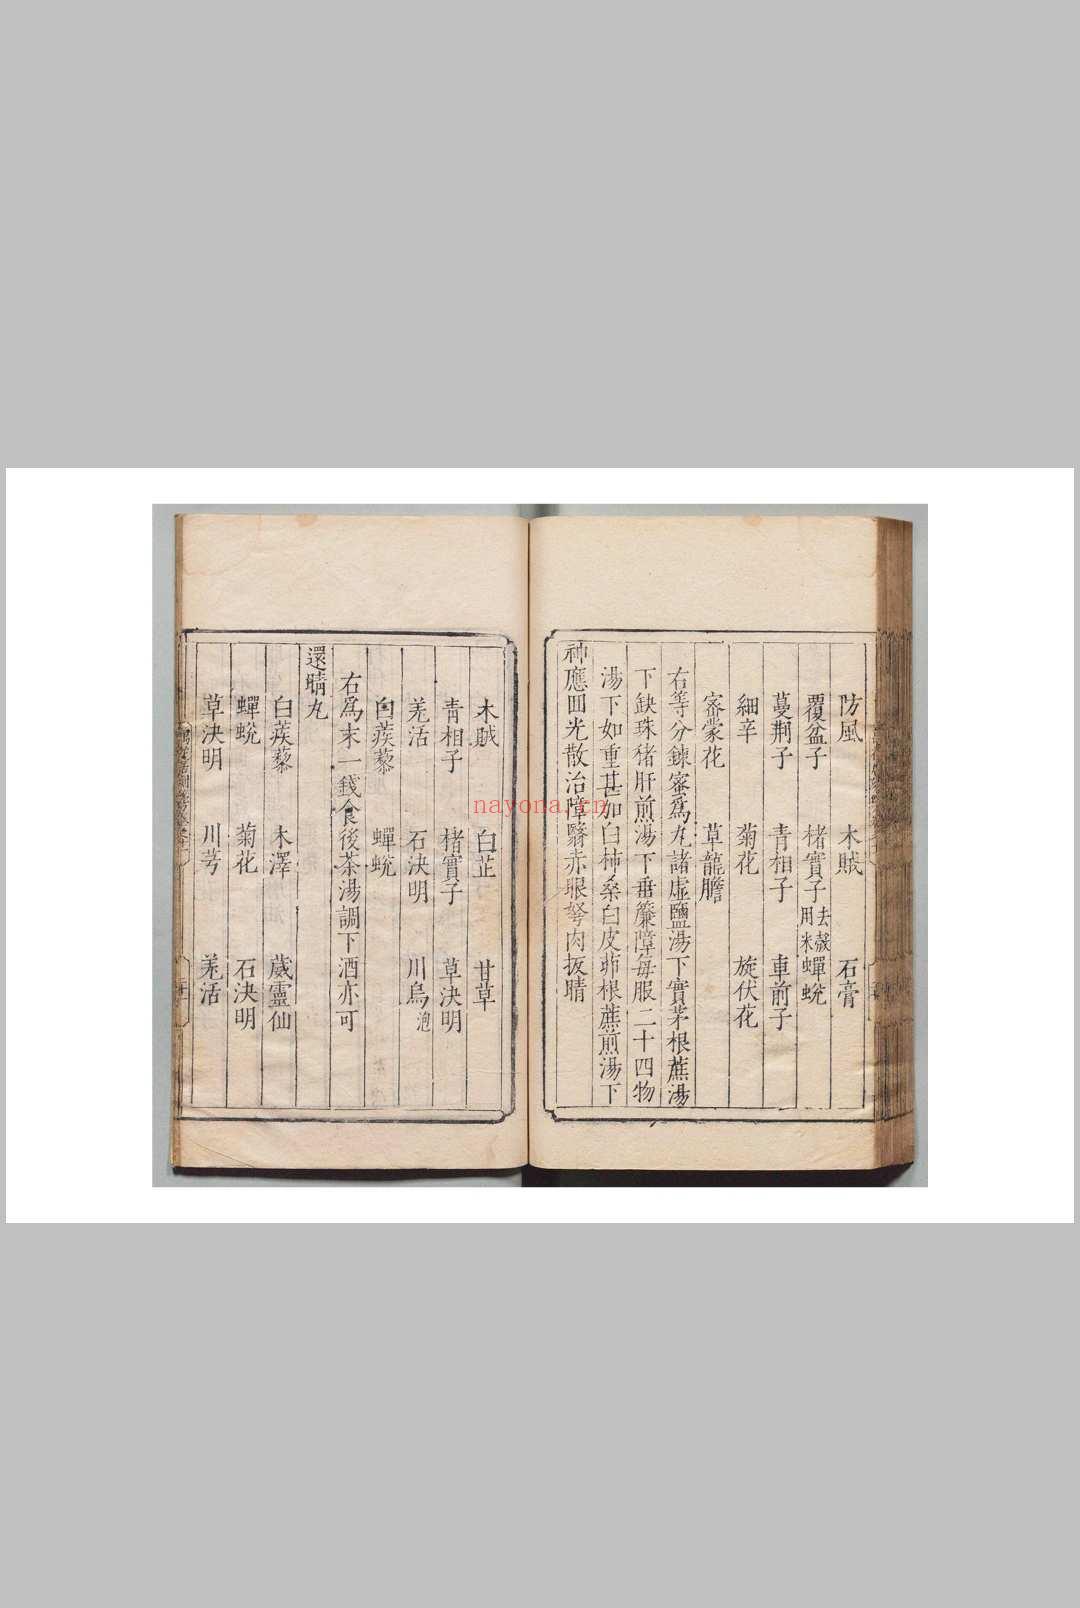 防風　木賊　石膏
覆盆子　楮實子去殼用米　蟬蛻
蔓荆子　青相子　車前子
細辛　菊花　旋伏花
宻蒙花　草龍膽
右等分鍊宻爲丸諸虛鹽湯下實茅根蔗湯
下缺珠猪肝煎湯下垂簾障每服二十四物
湯下如重甚加白柿桑白皮茆根蔗煎湯下
神應回光散治障翳赤眼弩肉扳睛
木賊　白芷　甘草
青相子　楮實子　草決明
羌活　石決明　川烏泡
白蒺藜　蟬蛻
右爲末一錢食後茶湯調下酒亦可
還睛丸
白蒺藜　木澤　葳靈仙
蟬蛻　菊花　石決明
草決明　川芎　羌活
nayona.cn